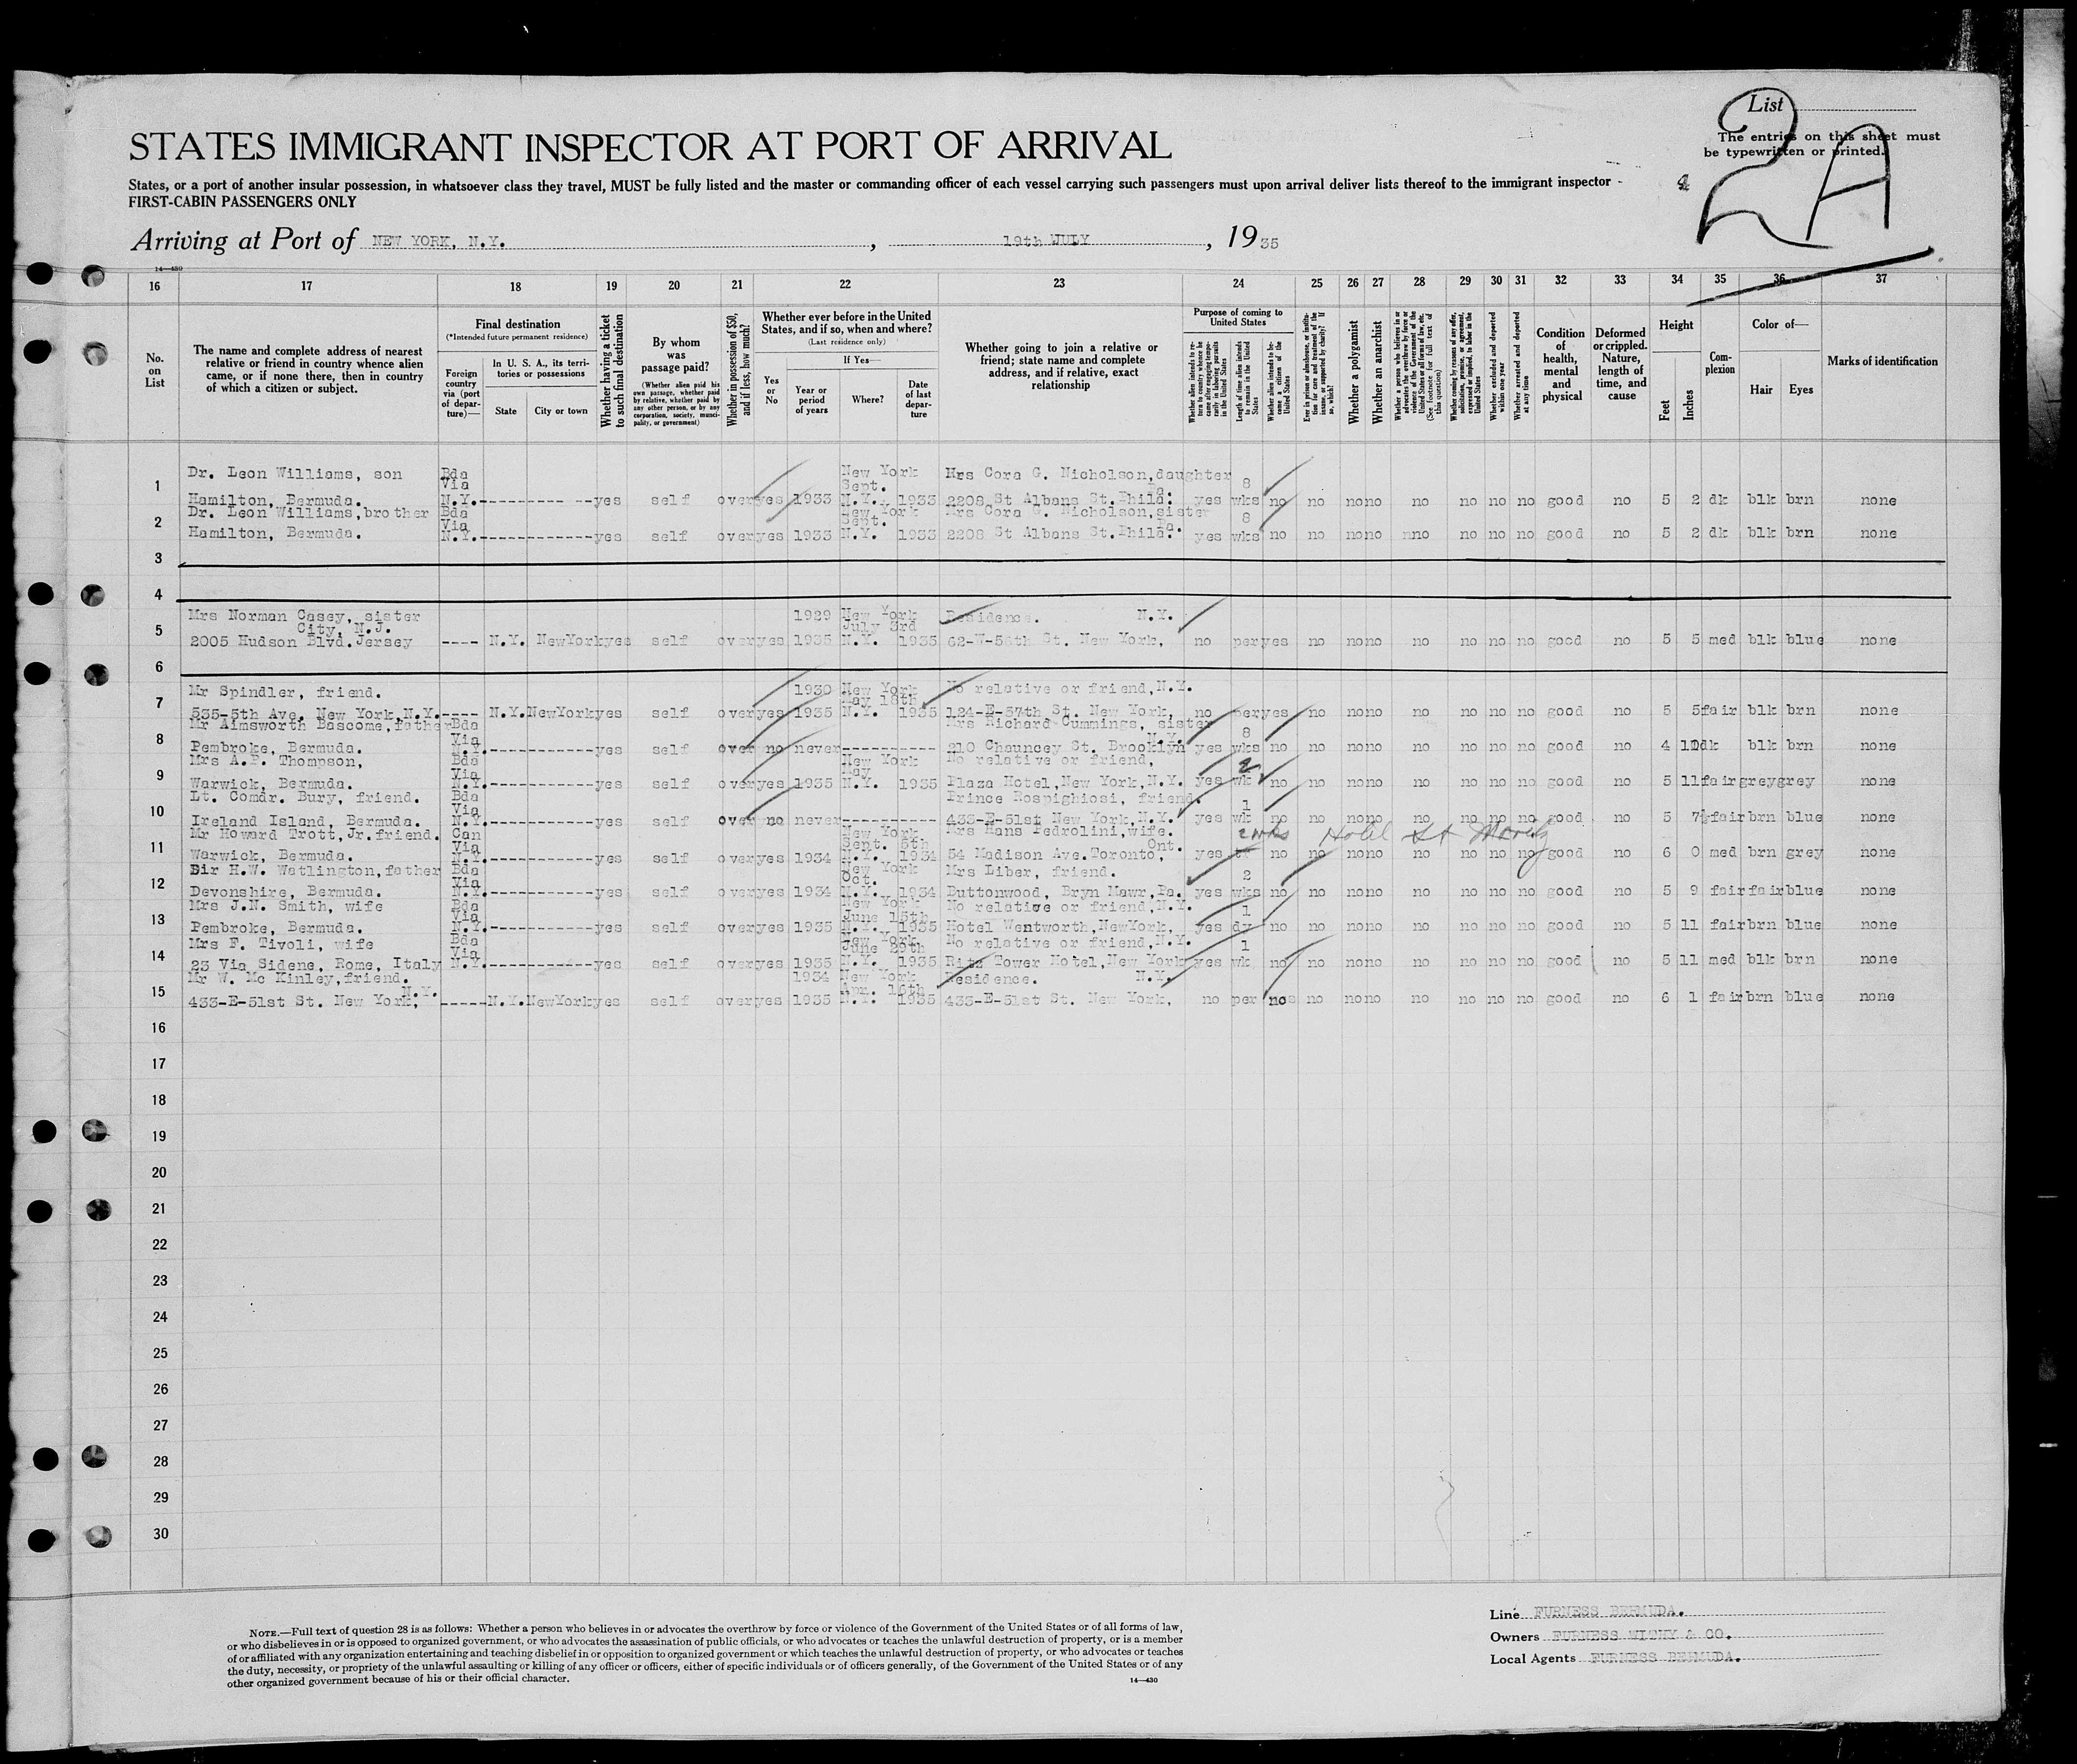 List
2A
The entries on this sheet must
be typewritten or printed.
STATES IMMIGRANT INSPECTOR AT PORT OF ARRIVAL
States, or a port of another insular possession, in whatsoever class they travel, MUST be fully listed and the master or commanding officer of each vessel carrying such passengers must upon arrival deliver lists thereof to the immigrant inspector
FIRST-CABIN PASSENGERS ONLY
Arriving at Port of NEW YORK, N.Y. , 19th JULY , 1935
14—430
16 17 18 19 20 21 22 23 24 25 26 27 28 29 30 31 32 33 34 35 36 37
No. on List
The name and complete address of nearest relative or friend in country whence alien came, or if none there, then in country of which a citizen or subject.
Final destination
(*Intended future permanent residence)
Foreign country via (port of departure)—
In U. S. A., its territories or possessions
State City or town
Whether having a ticket to such final destination
By whom was passage paid?
(Whether alien paid his own passage, whether paid by relative, whether paid by any other person, or by any corporation, society, municipality, or government)
Whether in possession of $50, and if less, how much?
Whether ever before in the United States, and if so, when and where?
(Last residence only)
Yes or No
If Yes—
Year or period of years
Where?
Date of last departure
Whether going to join a relative or friend; state name and complete address, and if relative, exact relationship
Purpose of coming to United States
Length of time alien intends to remain in the United States
Whether alien intends to become a citizen of the United States
Whether a polygamist
Whether an anarchist
Whether excluded and deported within one year
Whether arrested and deported at any time
Condition of health, mental and physical
Deformed or crippled. Nature, length of time, and cause
Height
Feet Inches
Complexion
Color of—
Hair Eyes
Marks of identification
Dr. Leon Williams, son Bda Via New York Sept. Mrs Cora G. Nicholson, daughter Pa. 8
1 Hamilton, Bermuda. N.Y. yes self over yes 1933 N.Y. 1933 2208 St Albans St. Phila. yes wks no no no no no no no no good no 5 2 dk blk brn none
Dr. Leon Williams, brother Bda Via New York Sept. Mrs Cora G. Nicholson, sister Pa. 8
2 Hamilton, Bermuda. N.Y. yes self over yes 1933 N.Y. 1933 2208 St Albans St. Phila. yes wks no no no no no no no no good no 5 2 dk blk brn none
3
4
Mrs Norman Casey, sister City, N.J. 1929 New York July 3rd Residence. N.Y.
5 2005 Hudson Blvd. Jersey ---- N.Y. NewYork yes self over yes 1935 N.Y. 1935 62-W-5 th St. New York, no per yes no no no no no no no good no 5 5 med blk blue none
6
Mr Spindler, friend. 1930 New York May 18th No relative or friend, N.Y.
7 535-5th Ave. New York, N.Y. ---- N.Y. NewYork yes self over yes 1935 N.Y. 1935 124-E-57th St. New York, no per yes no no no no no no no good no 5 5 fair blk brn none
Mr Aimsworth Bascome, father Bda Via Mrs Richard Cummings, sister N.Y. 8
8 Pembroke, Bermuda. N.Y. yes self over no never 210 Chauncey St. Brooklyn yes wks no no no no no no no no good no 4 dk blk brn none
Mrs A.P. Thompson, Bda Via New York May No relative or friend, 2
9 Warwick, Bermuda. N.Y. yes self over yes 1935 N.Y. 1935 Plaza Hotel, New York, N.Y. yes wk no no no no no no no no good no 5 11 fair grey grey none
Lt. Comdr. Bury, friend. Bda Via Prince Rospighiosi, friend. 1
10 Ireland Island, Bermuda. N.Y. yes self over no never 433-E-51st New York, N.Y. yes wk no no no no no no no no good no 5 7½ fair brn blue none
Mr Howard Trott, Jr. friend. Can Via New York Sept. 5th Mrs Hans Pedrolini, wife. Ont. 2 wks Hotel St Moritz
11 Warwick, Bermuda. N.Y. yes self over yes 1934 N.Y. 1934 54 Madison Ave. Toronto, yes tr no no no no no no no no good no 6 0 med brn grey none
Sir H.W. Watlington, father Bda Via New York Oct. Mrs Liber, friend. 2
12 Devonshire, Bermuda. N.Y. yes self over yes 1934 N.Y. 1934 Buttonwood, Bryn Mawr, Pa. yes wks no no no no no no no no good no 5 9 fair fair blue none
Mrs J.N. Smith, wife Bda Via New York June 15th No relative or friend, N.Y. 1
13 Pembroke, Bermuda. N.Y. yes self over yes 1935 N.Y. 1935 Hotel Wentworth, NewYork, yes dy no no no no no no no no good no 5 11 fair brn blue none
Mrs F. Tivoli, wife Bda Via New York June 29th No relative or friend, N.Y. 1
14 23 Via Sidene, Rome, Italy N.Y. yes self over yes 1935 N.Y. 1935 Ritz Tower Hotel, New York yes wk no no no no no no no no good no 5 11 med blk brn none
Mr W. Mc Kinley, friend. N.Y. 1934 New York Apr. 16th Residence. N.Y.
15 433-E-51st St. New York, ----- N.Y. NewYork yes self over yes 1935 N.Y. 1935 433-E-51st St. New York, no per no no no no no no no no good no 6 1 fair brn blue none
16
17
18
19
20
21
22
23
24
25
26
27
28
29
30
NOTE.—Full text of question 28 is as follows: Whether a person who believes in or advocates the overthrow by force or violence of the Government of the United States or of all forms of law,
or who disbelieves in or is opposed to organized government, or who advocates the assassination of public officials, or who advocates or teaches the unlawful destruction of property, or is a member
of or affiliated with any organization entertaining and teaching disbelief in or opposition to organized government or which teaches the unlawful destruction of property, or who advocates or teaches
the duty, necessity, or propriety of the unlawful assaulting or killing of any officer or officers, either of specific individuals or of officers generally, of the Government of the United States or of any
other organized government because of his or their official character.
14—430
Line FURNESS BERMUDA.
Owners FURNESS WITHY & CO.
Local Agents FURNESS BERMUDA.